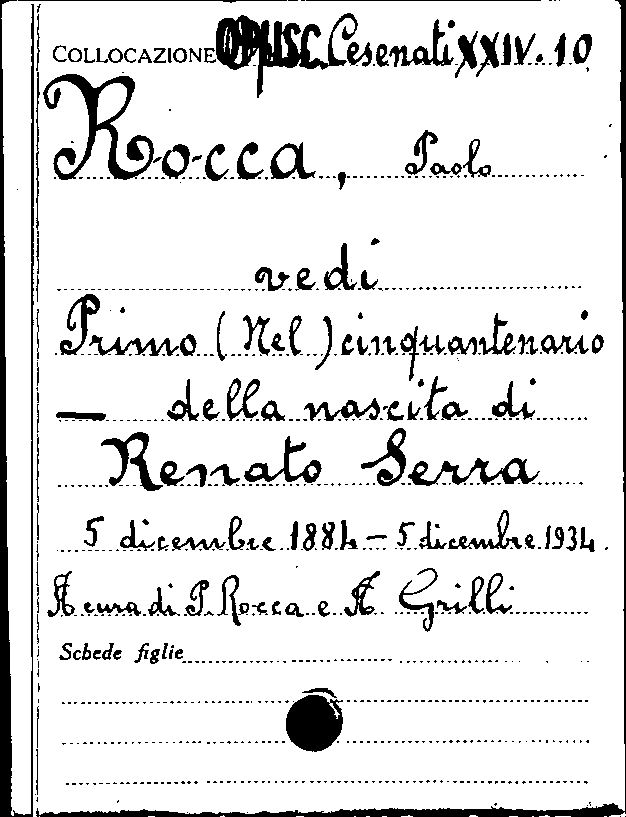 COLLOCAZIONE OPUSC. Cesenati XXIV. 10
Rocca, Paolo
vedi
Primo (Nel) cinquantenario
— della nascita di
Renato Serra
5 dicembre 1884 – 5 dicembre 1934.
A cura di P. Rocca e A. Grilli
Schede figlie